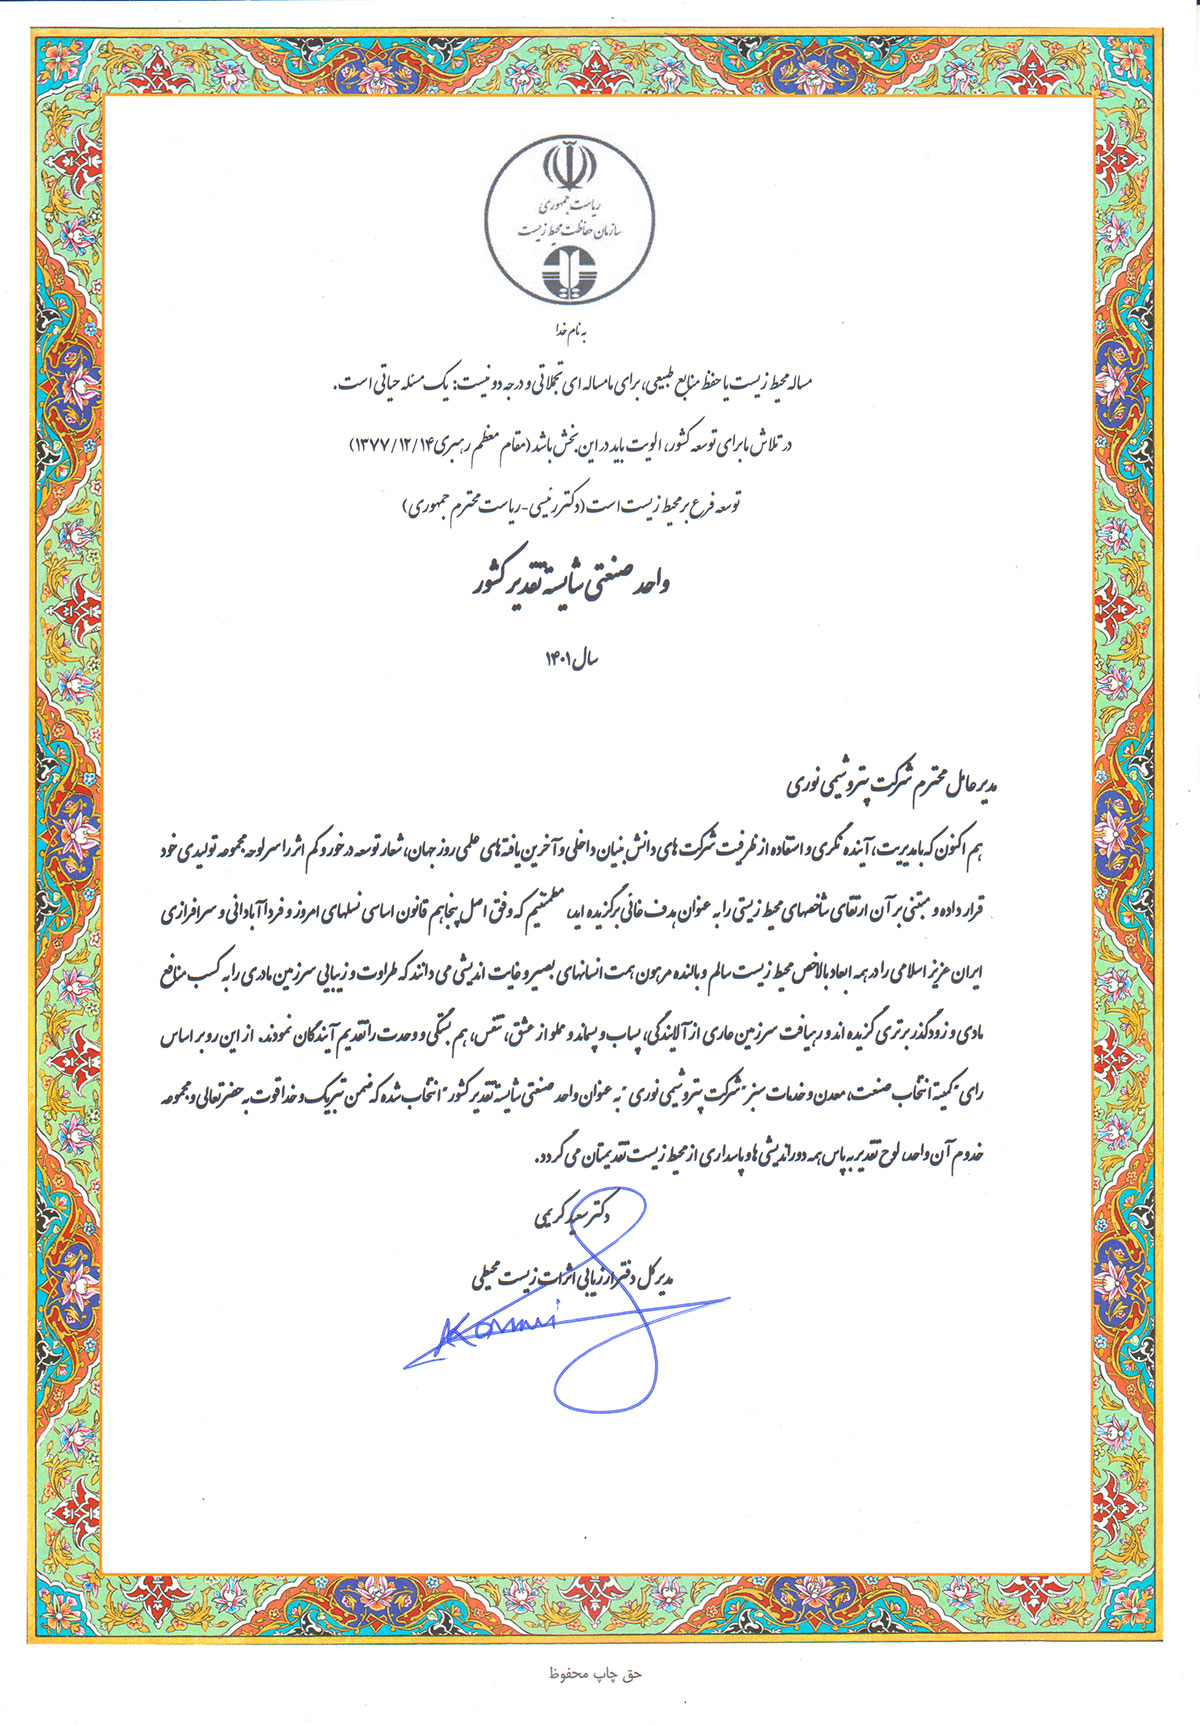 ریاست جمهوری
سازمان حفاظت محیط زیست
به نام خدا
مساله محیط زیست یا حفظ منابع طبیعی، برای ما مساله ای تجملاتی و درجه دو نیست: یک مسئله حیاتی است.
در تلاش ما برای توسعه کشور، الویت باید در این بخش باشد (مقام معظم رهبری ۱۳۷۷/۱۲/۱۴)
توسعه فرع بر محیط زیست است (دکتر رئیسی-ریاست محترم جمهوری)
واحد صنعتی شایسته تقدیر کشور
سال ۱۴۰۱
مدیر عامل محترم شرکت پتروشیمی نوری
هم اکنون که با مدیریت، آینده نگری و استفاده از ظرفیت شرکت های دانش بنیان داخلی و آخرین یافته های علمی روز جهان، شعار توسعه درخور و کم اثر را سرلوحه مجموعه تولیدی خود
قرار داده و مبتنی بر آن ارتقای شاخصهای محیط زیستی را به عنوان هدف غائی برگزیده اید، مطمئنیم که وفق اصل پنجاهم قانون اساسی نسلهای امروز و فردا آبادانی و سرافرازی
ایران عزیز اسلامی را در همه ابعاد بالاخص محیط زیست سالم و بالنده مرهون همت انسانهای بصیر و غایت اندیشی می دانند که طراوت و زیبایی سرزمین مادری را به کسب منافع
مادی و زودگذر برتری گزیده اند و رهیافت سرزمین عاری از آلایندگی، پساب و پسماند و مملو از عشق، تنفس، هم بستگی و وحدت را تقدیم آیندگان نمودند. از این رو بر اساس
رای "کمیته انتخاب صنعت، معدن و خدمات سبز" شرکت پتروشیمی نوری "به عنوان واحد صنعتی شایسته تقدیر کشور" انتخاب شده که ضمن تبریک و خدا قوت به حضرتعالی و مجموعه
خدوم آن واحد، لوح تقدیر به پاس همه دوراندیشی ها و پاسداری از محیط زیست تقدیمتان می گردد.
دکتر سعید کریمی
مدیر کل دفتر ارزیابی اثرات زیست محیطی
Karimi
حق چاپ محفوظ